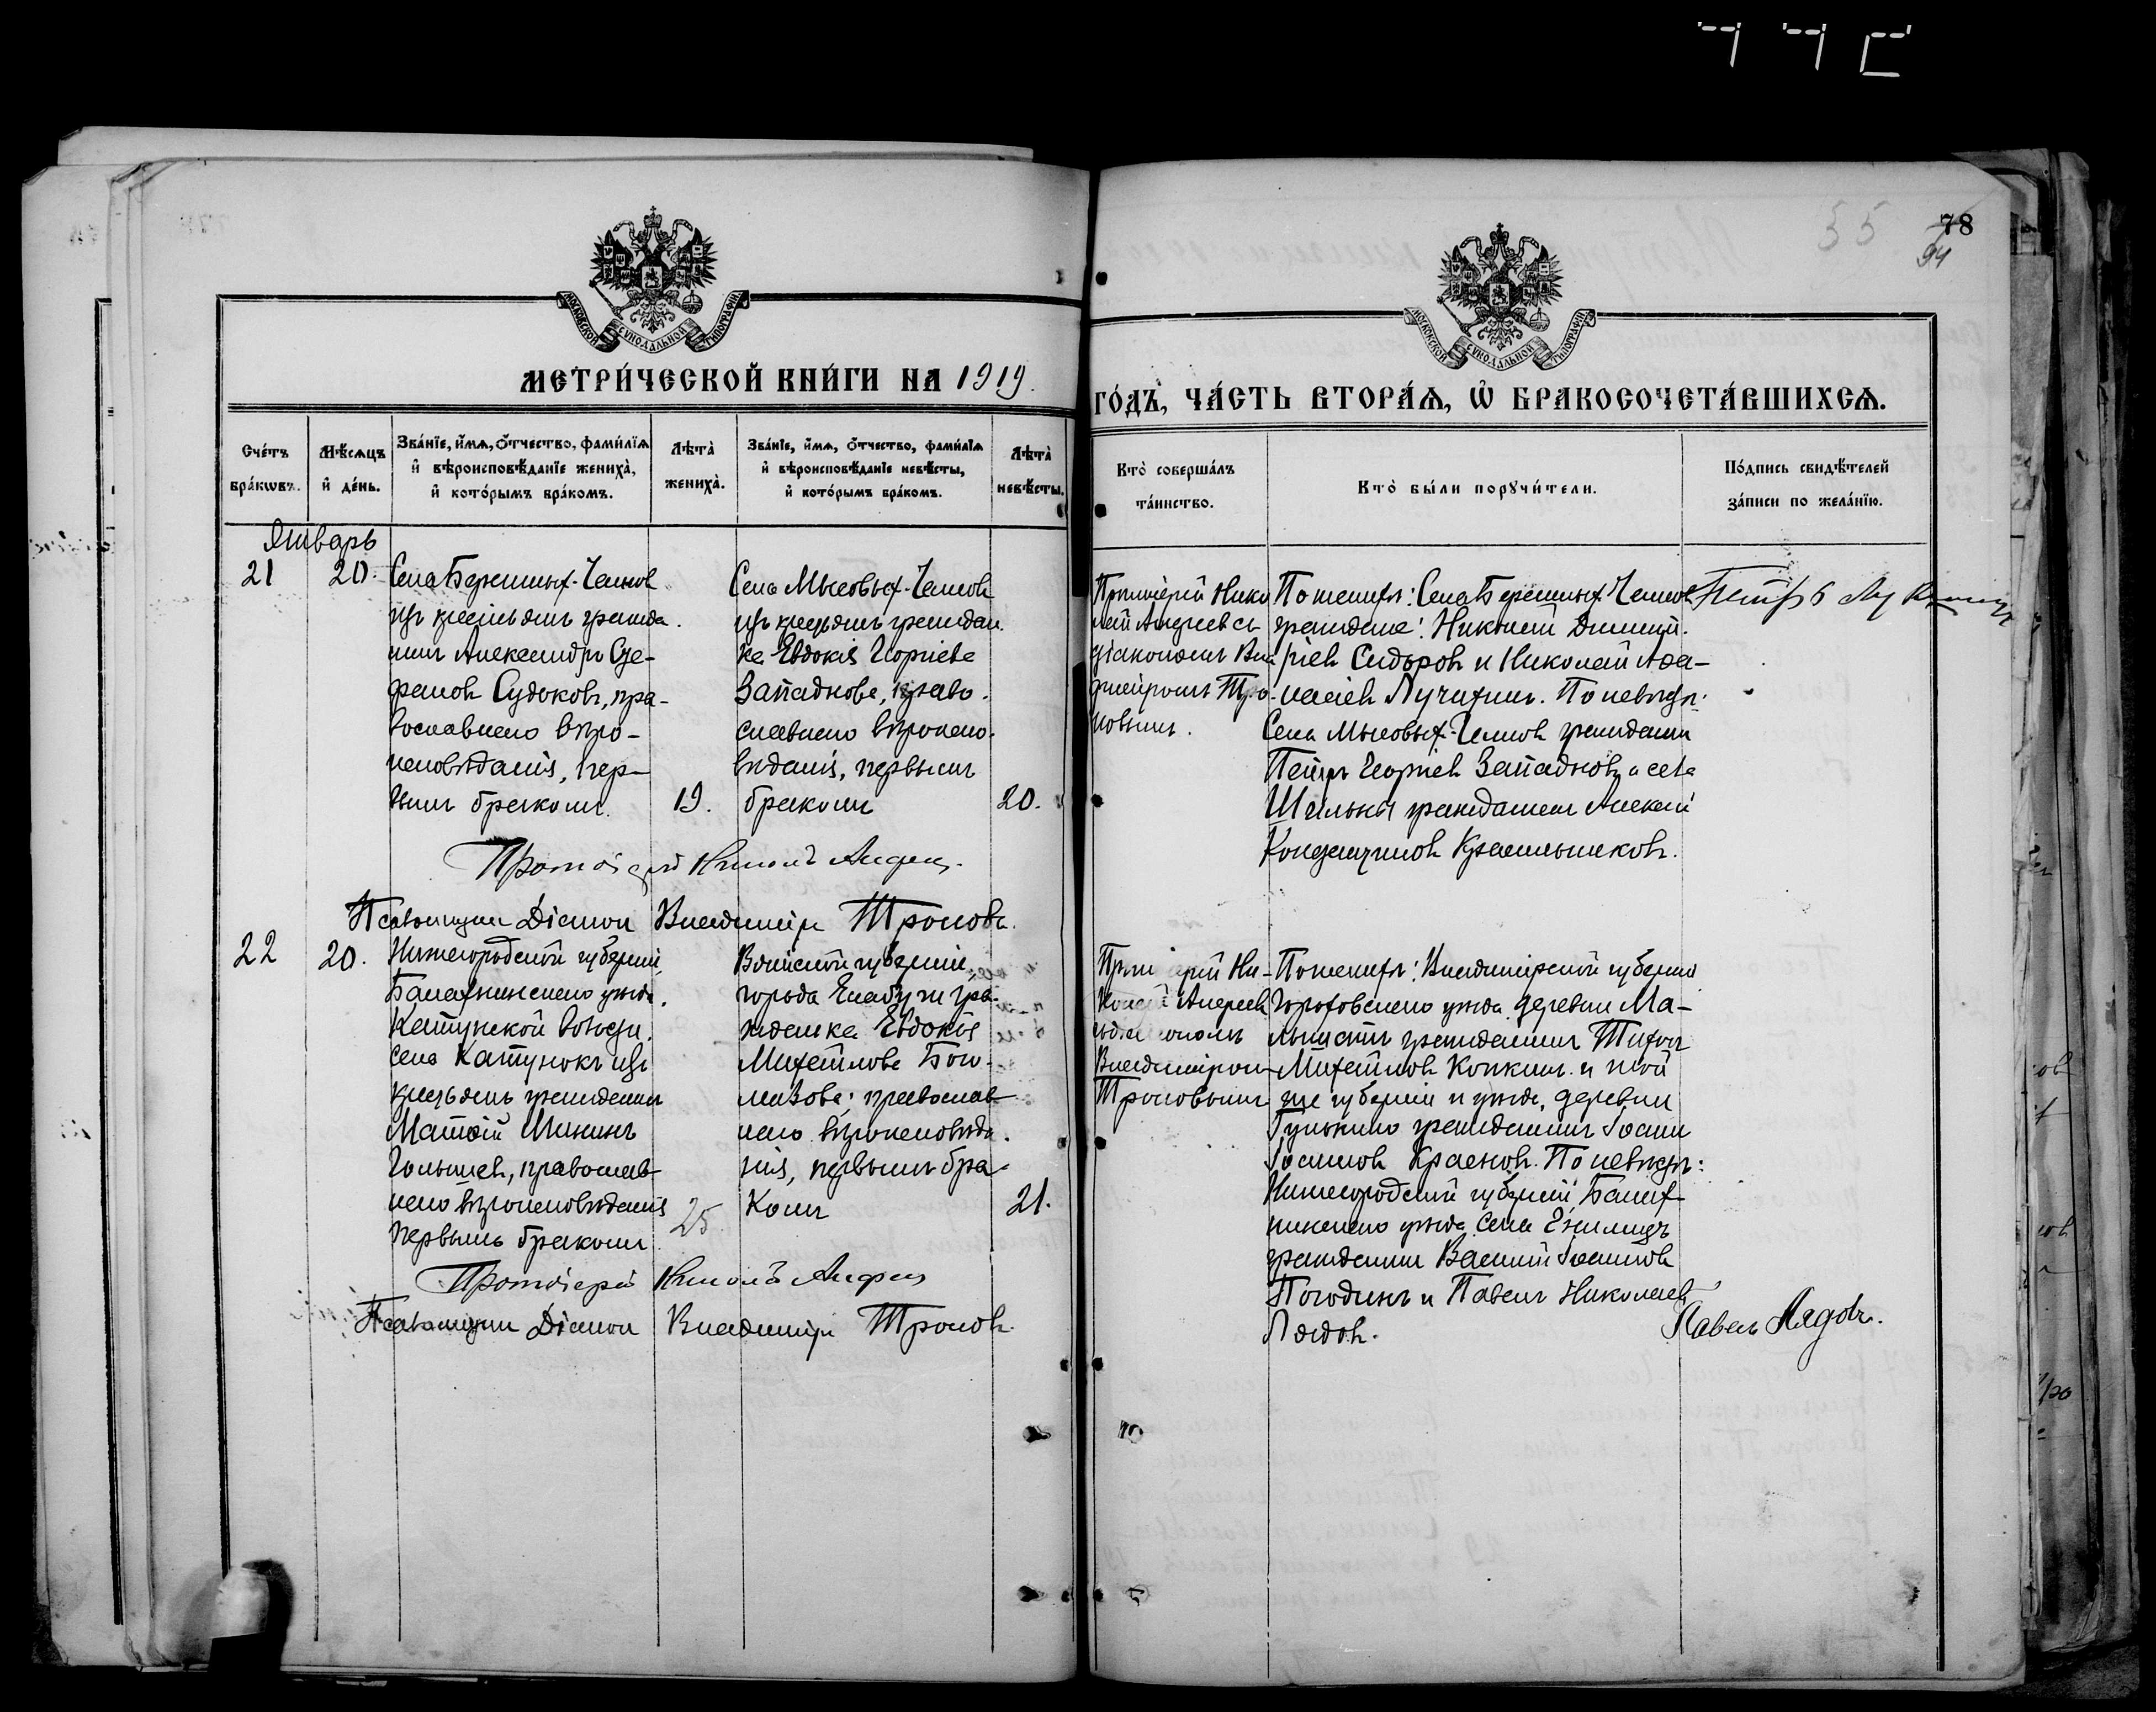 55
78
94
МОСКОВСКОЙ СѴНОДАЛЬНОЙ ТИПОГРАФІИ
МОСКОВСКОЙ СѴНОДАЛЬНОЙ ТИПОГРАФІИ
МЕТРИ́ЧЕСКОЙ КНИ́ГИ НА 1919.
ГО́ДЪ, ЧА́СТЬ ВТОРА́Ѧ, Ѽ БРАКОСОЧЕТА́ВШИХСѦ.
Сче́тъ
бра́кωвъ.
Мѣ́сѧцъ
и҆ де́нь.
Зва́нїе, и҆́мѧ, ѻ҆́тчество, фами́лїѧ
и҆ вѣроисповѣ́данїе жениха̀,
и҆ кото́рымъ бра́комъ.
Лѣта̀
жениха̀.
Зва́нїе, и҆́мѧ, ѻ҆́тчество, фами́лїѧ
и҆ вѣроисповѣ́данїе невѣ́сты,
и҆ кото́рымъ бра́комъ.
Лѣта̀
невѣ́сты.
Кто̀ соверша́лъ
та́инство.
Кто̀ бы́ли порꙋчи́тели.
По́дпись свидѣ́телей
за́писи по жела́нїю.
Январь
21
20.
Села Бережныхъ-Челновъ
изъ крестьянъ гражда-
нинъ Александръ Сте-
фановъ Судоковъ, пра-
вославнаго вѣро-
исповѣданія, пер-
вымъ бракомъ.
19.
Села Мысовыхъ-Челновъ
изъ крестьянъ граждан-
ка Евдокія Георгіева
Западнова, право-
славнаго вѣроиспо-
вѣданія, первымъ
бракомъ
20.
Протоіерей Нико
лай Андреевъ съ
діакономъ Вла
диміромъ Тро-
новымъ.
По женихѣ: Села Бережныхъ Челновъ
граждане: Николай Димит-
ріевъ Сидоровъ и Николай Афа-
насіевъ Лучихинъ. По невѣстѣ:
Села Мысовыхъ-Челновъ гражданинъ
Петръ Георгіевъ Западновъ и села
Шильны гражданинъ Алексій
Кондратиновъ Красильниковъ.
Протоіерей Николай Андреевъ.
Псаломщикъ Діаконъ Владиміръ Троновъ.
22
20.
Нижегородской губерніи,
Балахнинскаго уѣзда,
Катунской волости,
села Катунокъ изъ
крестьянъ гражданинъ
Матѳій Ивановъ
Голышевъ, православ-
наго вѣроисповѣданія
первымъ бракомъ
25.
Вятской губерніи,
города Елабуги гра-
жданка Евдокія
Михайлова Бого-
мазова, православ-
наго вѣроисповѣда-
нія, первымъ бра-
комъ
21.
Протоіерей Ни-
колай Андреевъ
съ діакономъ
Владиміромъ
Троновымъ
По женихѣ: Владимірской губерніи
Гороховскаго уѣзда деревни Ма-
гражданинъ Тихонъ
Михайловъ Конкинъ и той
же губерніи и уѣзда, деревни
гражданинъ Іоаннъ
Іоанновъ Красновъ. По невѣстѣ:
Нижегородской губерніи, Балах-
нинскаго уѣзда села
гражданинъ Василій Іоанновъ
Погодинъ и Павелъ Николаевъ
Лядовъ.
Павелъ Лядовъ.
Протоіерей Николай Андреевъ
Псаломщикъ Діаконъ Владиміръ Троновъ.